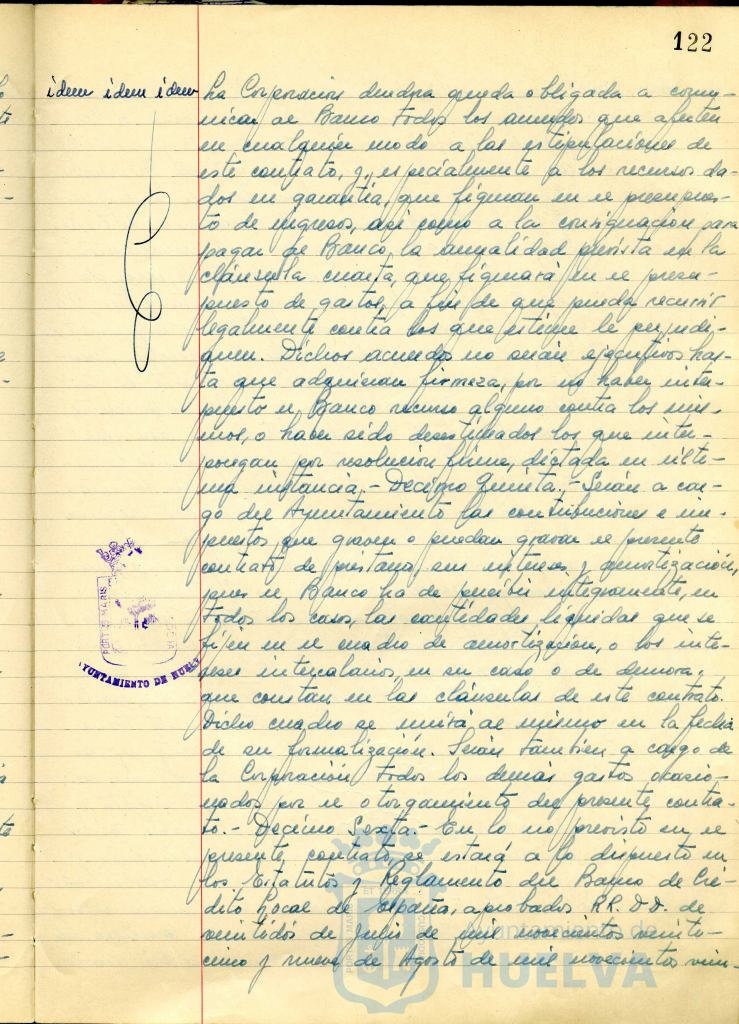 122
idem idem idem
La Corporación deudora queda obligada a comu-
nicar al Banco todos los acuerdos que afecten
en cualquier modo a las estipulaciones de
este contrato, y, especialmente a los recursos da-
dos en garantía, que figuran en el presupues-
to de ingresos, así como a la consignación para
pagar al Banco, la anualidad prevista en la
cláusula cuarta, que figurará en el presu-
puesto de gastos, a fin de que pueda recurrir
legalmente contra los que estime le perjudi-
quen. Dichos acuerdos no serán ejecutivos has-
ta que adquieran firmeza, por no haber inter-
puesto el Banco recurso alguno contra los mis-
mos, o haber sido desestimados los que inter-
pongan por resolución firme, dictada en últi-
ma instancia.- Decimo Quinta.- Serán a car-
go del Ayuntamiento las contribuciones e im-
puestos que graven o puedan gravar el presente
contrato de préstamo, sus intereses y amortización,
pues el Banco ha de percibir íntegramente, en
todos los casos, las cantidades líquidas que se
fijen en el cuadro de amortización, o los inte-
reses intercalarios, en su caso o de demora,
que constan en las cláusulas de este contrato.
Dicho cuadro se unirá al mismo en la fecha
de su formalización. Serán también a cargo de
la Corporación todos los demás gastos ocasio-
nados por el otorgamiento del presente contra-
to.- Decimo Sexta.- En lo no previsto en el
presente contrato, se estará a lo dispuesto en
los Estatutos y Reglamento del Banco de Cré-
dito Local de España, aprobados RR.DD. de
veintidós de Julio de mil novecientos veinti-
cinco y nueve de Agosto de mil novecientos vein-
PORTUS MARIS
AYUNTAMIENTO DE HUELVA
Ayuntamiento de
HUELVA